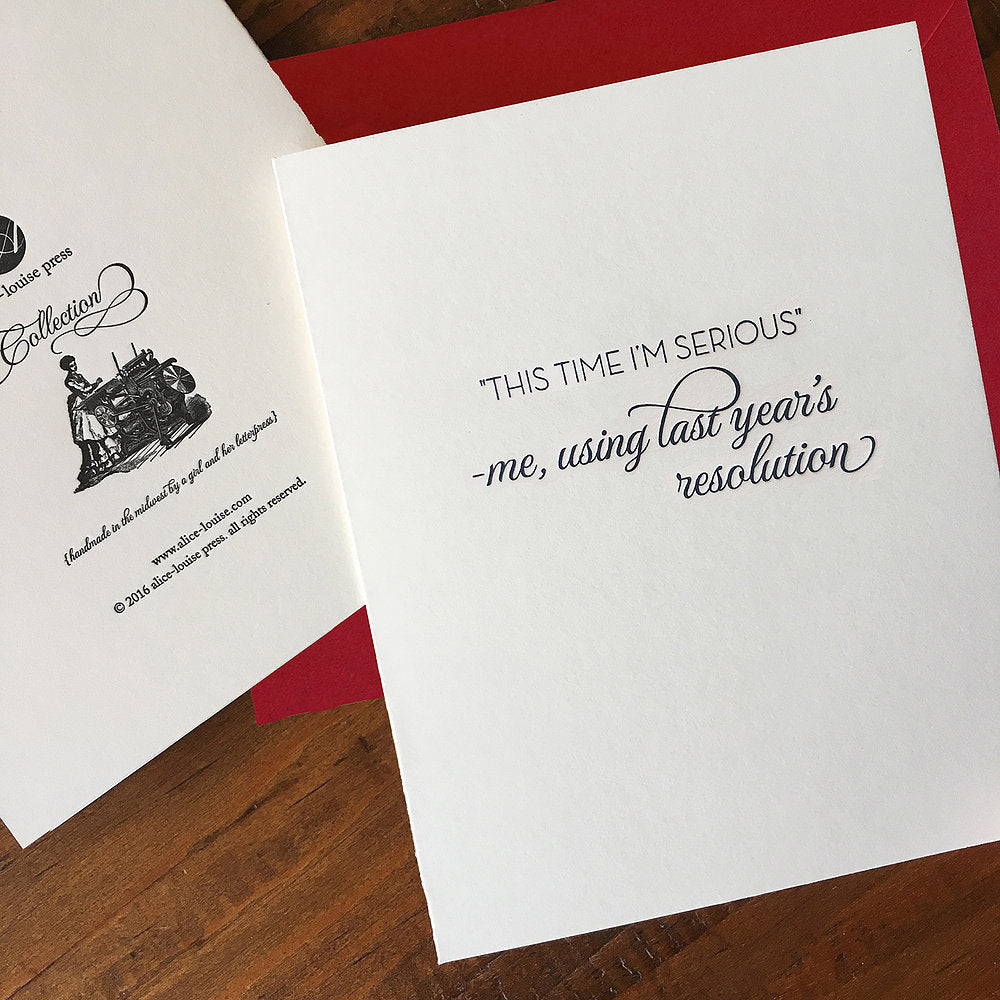 -louise press
Collection
{handmade in the midwest by a girl and her letterpress}
www.alice-louise.com
© 2016 alice-louise press. all rights reserved.
"THIS TIME I'M SERIOUS"
-me, using last year's
resolution